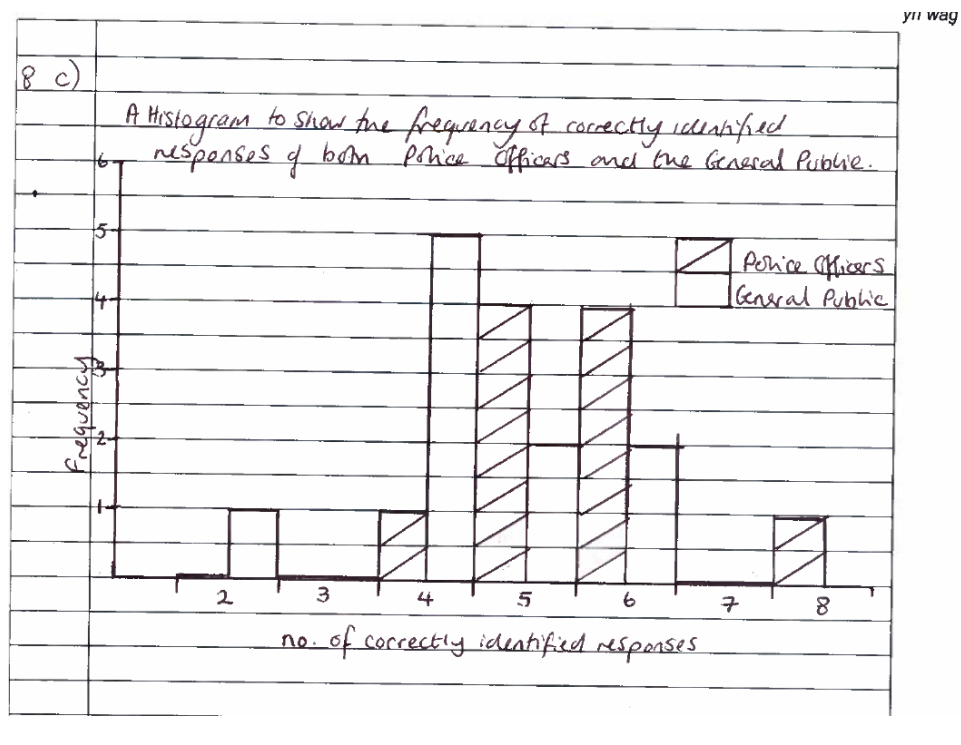 yn wag
8 c)
A Histogram to show the frequency of correctly identified
responses of both Police Officers and the General Public.
6
5
Police Officers
General Public
4
3
Frequency
2
1
2 3 4 5 6 7 8
no. of correctly identified responses